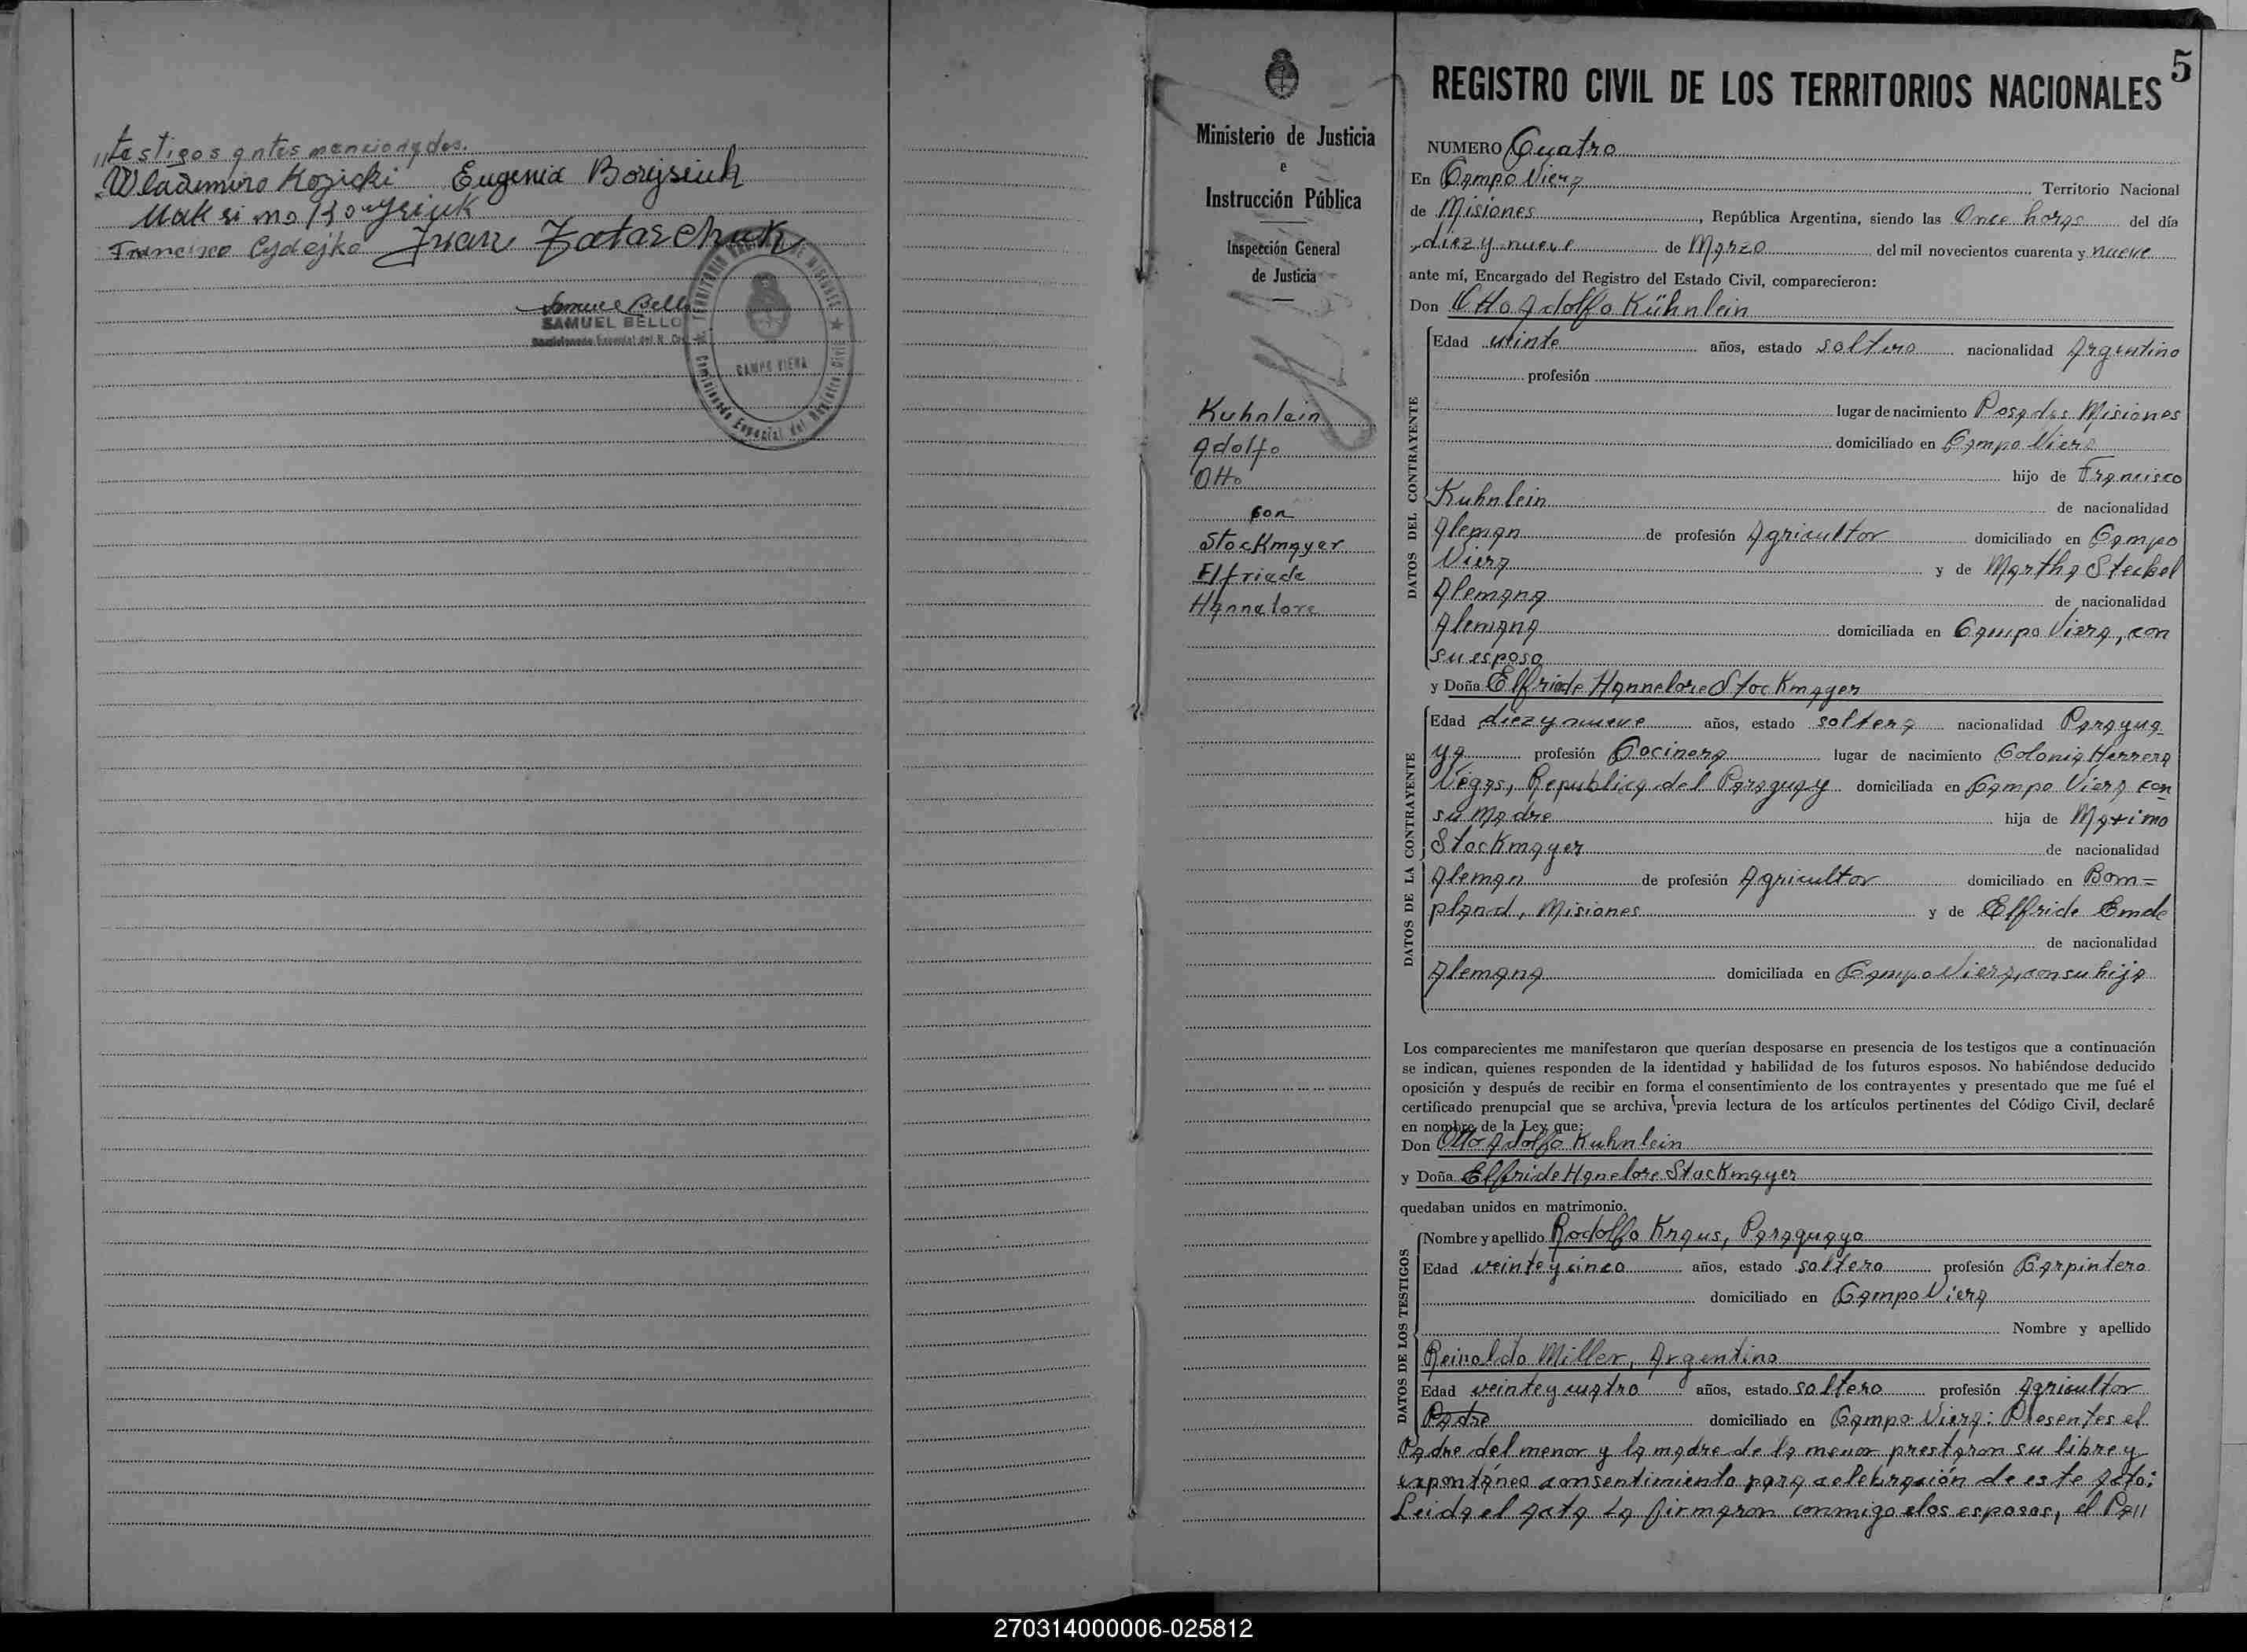 testigos antes mencionados.
Wladimiro Kozicki Eugenia Borysiuk
Maksimo Borysiuk
Francisco Juan Zatarchuk
Samuel Bello
SAMUEL BELLO
Comisionado Especial del R. Civil
TERRITORIO NACIONAL DE MISIONES
CAMPO VIERA
Comisionado Especial del Registro Civil
Ministerio de Justicia
e
Instrucción Pública
Inspección General
de Justicia
Kuhnlein
Adolfo
Otto
con
Stockmayer
Elfriede
Hannelore
5
REGISTRO CIVIL DE LOS TERRITORIOS NACIONALES
NUMERO Cuatro
En Campo Viera Territorio Nacional
de Misiones, República Argentina, siendo las Once horas del día
diez y nueve de Marzo del mil novecientos cuarenta y nueve
ante mí, Encargado del Registro del Estado Civil, comparecieron:
Don Otto Adolfo Kühnlein
DATOS DEL CONTRAYENTE
Edad veinte años, estado soltero nacionalidad Argentino
profesión
lugar de nacimiento Posadas Misiones
domiciliado en Campo Viera
hijo de Francisco
Kuhnlein de nacionalidad
Aleman de profesión Agricultor domiciliado en Campo
Viera y de Martha Steckel
Alemana de nacionalidad
Alemana domiciliada en Campo Viera, con
su esposo
y Doña Elfriede Hannelore Stockmayer
DATOS DE LA CONTRAYENTE
Edad diez y nueve años, estado soltera nacionalidad Paragua
ya profesión Cocinera lugar de nacimiento Colonia Herrera
Vegas, Republica del Paraguay domiciliada en Campo Viera con
su Madre hija de Maximo
Stockmayer de nacionalidad
Aleman de profesión Agricultor domiciliado en Bom=
pland, Misiones y de Elfride Emde
de nacionalidad
Alemana domiciliada en Campo Viera, con su hija
Los comparecientes me manifestaron que querían desposarse en presencia de los testigos que a continuación
se indican, quienes responden de la identidad y habilidad de los futuros esposos. No habiéndose deducido
oposición y después de recibir en forma el consentimiento de los contrayentes y presentado que me fué el
certificado prenupcial que se archiva, previa lectura de los artículos pertinentes del Código Civil, declaré
en nombre de la Ley que:
Don Otto Adolfo Kuhnlein
y Doña Elfride Hanelore Stockmayer
quedaban unidos en matrimonio.
DATOS DE LOS TESTIGOS
Nombre y apellido Rodolfo Kraus, Paraguayo
Edad veinte y cinco años, estado soltero profesión Carpintero
domiciliado en Campo Viera
Nombre y apellido
Reinaldo Miller, Argentino
Edad veinte y cuatro años, estado soltero profesión Agricultor
Padre domiciliado en Campo Viera: Presentes el
Padre del menor y la madre de la menor prestaron su libre y
expontáneo consentimiento para celebración de este acto:
Leida el acta la firmaron conmigo los esposos, el Pa//
270314000006-025812